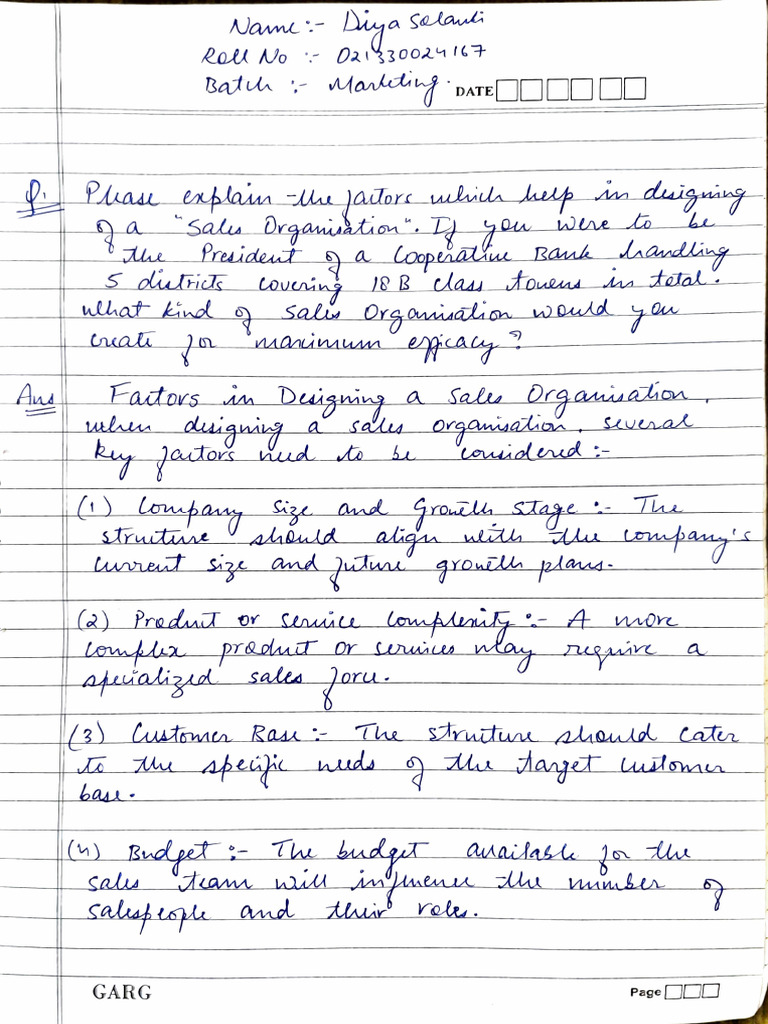 Name:- Diya Solanki
Roll No :- 021330024167
Batch :- Marketing.
DATE
Q. Please explain the factors which help in designing
of a "Sales Organisation". If you were to be
the President of a Cooperative Bank handling
5 districts covering 18 B class towns in total.
What kind of Sales Organisation would you
create for maximum efficacy?
Ans Factors in Designing a Sales Organisation,
when designing a sales organisation, several
key factors need to be considered:-
(1) Company Size and Growth Stage:- The
structure should align with the company's
current size and future growth plans.
(2) Product or service Complexity:- A more
complex product or services may require a
specialized sales force.
(3) Customer Base:- The structure should cater
to the specific needs of the target customer
base.
(4) Budget:- The budget available for the
sales team will influence the number of
salespeople and their roles.
GARG Page